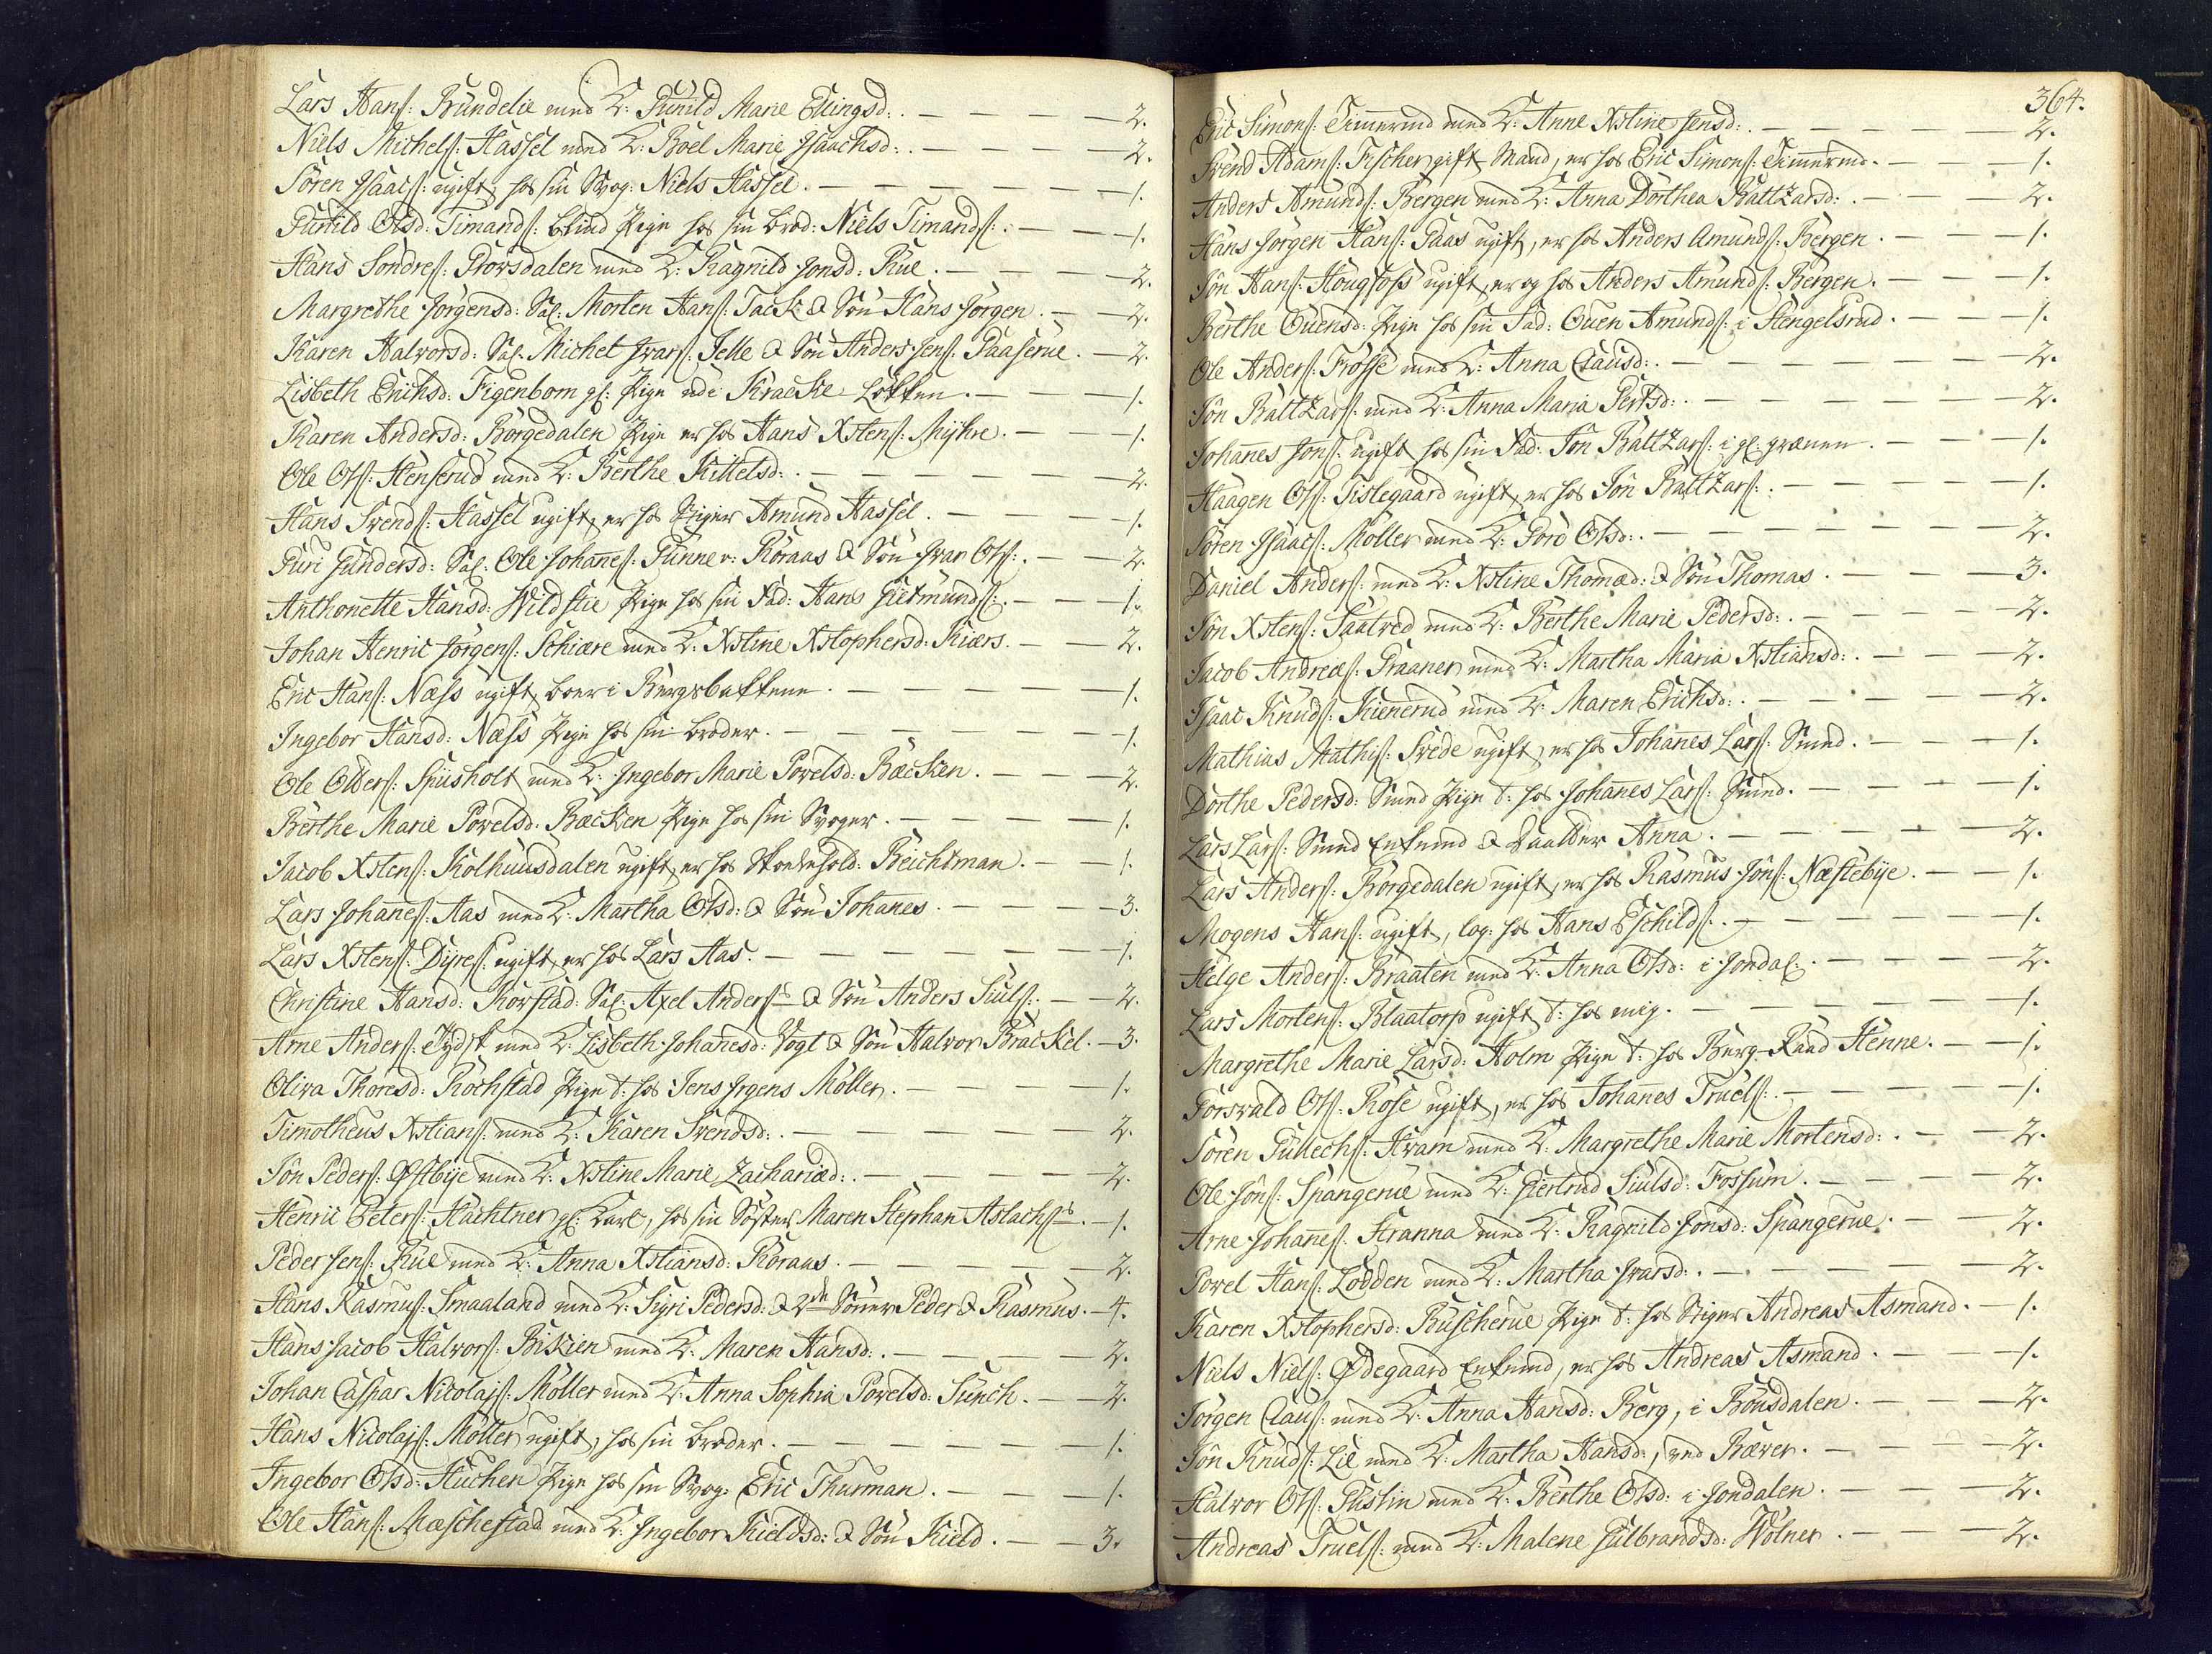 Lars Hans: Brundelie med K: Gunild Marie Ellingsd: . — — — — 2.
Niels Michels: Hassel med K: Boel Marie Isaachsd: . — — — 2.
Sören Isaacs: ugift, hos sin Svog: Niels Hassel. — — — — — — 1.
Gunild Olsd: Timands: blind Pige hos sin Brod: Niels Timands: . — — 1.
Hans Sondres: Prowsdalen med K: Ragnild Jonsd: Rue. — — — — 2.
Margrethe Jörgensd: Sal: Morten Hans: Tack & Sön Hans Jörgen. — — 2.
Karen Halvorsd: Sal: Michel Ivars: Telle & Sön Anders Jens: Paaserue. — 2.
Lisbeth Erichsd: Figenbom gl: Pige udi Kracke Lökken. — — — 1.
Karen Andersd: Borgedalen Pige er hos Hans Xstens: Myhre. — — — 1.
Ole Ols: Henserud med K: Berthe Kittelsd: . — — — — 2.
Hans Svends: Hassel ugift, er hos Stiger Amund Hassel. — — — 1.
Guri Gundersd: Sal: Ole Johañes: Gunner: Roraas & Sön Ivar Ols: . — — 2.
Anthonette Hansd: Wildstie Pige hos sin Fad: Hans Gutmunds: . — — 1.
Johan Henric Jörgens: Schiære med K: Xstine Xstophersd: Kiærs. — — 2.
Eric Hans: Næss ugift, boer i Bergsbakkene. — — — — — 1.
Ingebor Hansd: Næss Pige hos sin broder. — — — — — — 1.
Ole Olders: Spusholt med K: Ingebor Marie Povelsd: Bæcken. — — — 2.
Berthe Marie Povelsd: Bæcken Pige hos sin Svoger. — — — — — 1.
Jacob Xstens: Kolhuusdalen ugift, er hos Reichtman. — — 1.
Lars Johañes: Aas med K: Martha Olsd: & Sön Johañes. — — — — 3.
Lars Xstens: Dyres: ugift, er hos Lars Aas. — — — — — — — 1.
Christine Hansd: Korstad: Sal: Axel Anders: & Sön Anders Siuls: . — — 2.
Arne Anders: Tydsk med K: Lisbeth Johañesd: Vogt & Sön Halvor Brackel. — 3.
Oliva Thoresd: Rochstad Pige t: hos Jens Irgens Möller. — — — — 1.
Timotheus Xstians: med K: Karen Svendsd: . — — — — — 2.
Jön Peders: Östbye med K: Xstine Marie Zachariæd: . — — — — 2.
Henric Peters: Hachtner gl: Karl, hos sin Söster Maren Stephan Aslachs: . — 1.
Peder Jens: Rue med K: Anna Xstiansd: Roraas. — — — — — 2.
Hans Rasmus: Smaaland med K: Sigri Pedersd: & 2de Söner Peder & Rasmus. — 4.
Hans Jacob Halvors: Biskien med K: Maren Hansd: . — — — — — 2.
Johan Caspar Nicolajs: Möller med K: Anna Sophia Povelsd: Funch. — — 2.
Hans Nicolajs: Möller ugift, hos sin broder. — — — — — — 1.
Ingebor Olsd: Huchen Pige hos sin Svog: Eric Thurman. — — — 1.
Ole Hans: Mæschestad med K: Ingebor Kieldsd: & Sön Kield. — — 3.
364.
Eric Simons: Timermd med K: Anne Xstine Jensd: . — — — — — 2.
Svend Adams: Fischer gift Mand, er hos Eric Simons: Timermd. — — — 1.
Anders Amunds: Bergen med K: Anna Dorthea Baltzarsd: . — — — 2.
Hans Jörgen Hans: Paas ugift, er hos Anders Amunds: Bergen. — — — 1.
Jön Hans: Hougfoss ugift, er og hos Anders Amunds: Bergen. — — — 1.
Berthe Ouensd: Pige hos sin Fad: Ouen Amunds: i Stengelsrud. — — — 1.
Ole Anders: Frosse med K: Anna Clausd: . — — — — — 2.
Jön Baltzars: med K: Anna Maria Pertsd: . — — — — — — 2.
Johañes Jons: ugift hos sin Fad: Jön Baltzars: i gl: — — — 1.
Haagen Ols: Tislegaard ugift, er hos Jön Baltzars: . — — — — — 1.
Sören Isaacs: Möller med K: Goro Olsd: . — — — — — — 2.
Daniel Anders: med K: Xstine Thomæd: & Sön Thomas. — — — — 3.
Jön Xstens: Saatved med K: Berthe Marie Pedersd: . — — — — — 2.
Jacob Andreæs: Praaner med K: Martha Maria Xstiansd: . — — — — 2.
Isaac Knuds: Kienerud med K: Maren Erichsd: . — — — — — — 2.
Mathias Mathis: Svede ugift, er hos Johañes Lars: Smed. — — — — 1.
Dorthe Pedersd: Smed Pige t: hos Johañes Lars: Smed. — — — — 1.
Lars Lars: Smed Enkemd & Daatter Anna. — — — — — — 2.
Lars Anders: Borgedalen ugift, er hos Rasmus Jöns: Næstebye. — — — 1.
Mogens Hans: ugift, log: hos Hans Eschilds: . — — — — — — 1.
Helge Anders: Braaten med K: Anna Olsd: i Jondal: . — — — — — 2.
Lars Mortens: Blaatorp ugift t: hos mig. — — — — — — — 1.
Margrethe Marie Larsd: Holm Pige t: hos Berg-Raad Henne. — — — 1.
Torsvald Ols: Rose ugift, er hos Johañes Truels: . — — — — — — 1.
Sören Gullechs: Kvam med K: Margrethe Marie Mortensd: . — — — — 2.
Ole Jöns: Spangerue med K: Giertrud Siulsd: Fossum. — — — — 2.
Arne Johañes: Stranna med K: Ragnild Jonsd: Spangerue. — — — — 2.
Povel Hans: Lodden med K: Martha Ivarsd: . — — — — — — 2.
Karen Xstophersd: Buscherue Pige t: hos Stiger Andreas Asmand. — — 1.
Niels Niels: Ödegaard Enkemd, er hos Andreas Asmand. — — — — 1.
Jörgen Claus: med K: Anna Hansd: Berg, i Bousdalen. — — — — 2.
Jön Knuds: Lie med K: Martha Hansd:, ved Bæver. — — — — — 2.
Halvor Ols: Pustin med K: Berthe Olsd: i Jondalen. — — — — — 2.
Andreas Truels: med K: Malene Gulbrandsd: Wölner. — — — — 2.